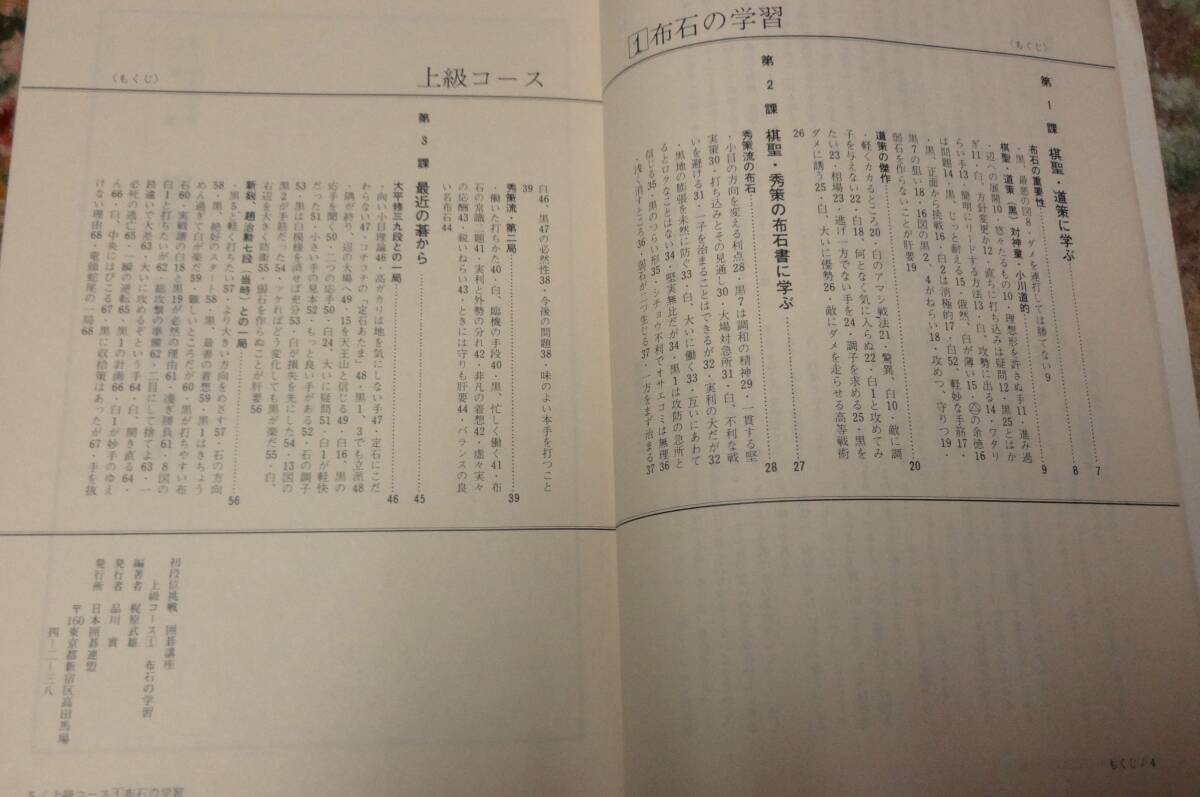 1 布石の学習
〈もくじ〉
第1課 棋聖・道策に学ぶ……7
布石の重要性……8
・黒、最悪の図8・ダメを連打しては勝てない9
棋聖・道策(黒)対神童・小川道的……9
・辺への展開10・悠々たるもの10・理想形を許さぬ手11・進み過
ぎ11・白、方針変更か12・直ちに打ち込みは疑問12・黒25とはか
らい手13・簡明にリードする方法13・白、攻勢に出る14・ワタリ
は問題14・黒、じっと耐える15・俄然、白が薄い15・㊅の余徳16
・黒、正面から挑戦16・白2は消極的17・白52、軽妙な手筋17・
黒7の狙い18・16図の黒2、4がねらい18・攻めつ、守りつ19・
弱石を作らないことが肝要19
道策の傑作……20
・軽くかかるところ20・白のアマシ戦法21・驚異、白10・敵に調
子を与えない22・白18、何となく気に入らぬ22・白1と攻めてみ
たい23・相場23・逃げ一方でない手を24・調子を求める25・黒を
ダメに誘う25・白、大いに優勢26・敵にダメを走らせる高等戦術
26
第2課 棋聖・秀策の布石書に学ぶ……27
秀策流の布石……28
・小目の方向を変える利点28・黒7は調和の精神29・一貫する堅
実策30・打ち込みとその見通し30・大場対急所31・白、不利な戦
いを避ける31・一子を治まることはできるが32・実利の大だが32
・黒地の膨張を未然に防ぐ33・白、大いに働く33・互いにあわて
るとロクなことはない34・堅実無比だが34・黒1は攻防の急所と
信じる35・黒のつらい形35・シチョウ不利でオサエコミは無理36
・浅く消すところ36・弱石が二つ生じる37・一方をまず治まる37
もくじ 4
上級コース
〈もくじ〉
白46・黒47の必然性38・今後の問題38・味のよい本手を打つこと
39
秀策流、第二局……39
・働いた打ちかた40・白、臨機の手段40・黒、忙しく働く41・布
石の常識二題41・実利と外勢の分れ42・非凡の着想42・虚々実々
の応酬43・鋭いねらい43・ときには守りも肝要44・バランスの良
い名布石44
第3課 最近の碁から……45
大平修三九段との一局……46
・向い小目理論46・高ガカリは地を気にしない手47・定石にこだ
わらない47・コチコチの「定石あたま」48・黒1、3でも立派48
・隅が終り、辺の大場49・15を天王山と信じる49・白16、黒の
応手を聞く50・二つの応手50・白24、大いに疑問51・白1が軽快
だった51・小さい手の見本52・もっと良い手がある52・石の調子
53・黒は白模様を消せば充分53・白が損失を先にした54・13図の
黒2が手筋だった54・ツケればどう変化しても黒が楽だ55・白、
右辺を大きく防衛55・弱石を作らぬことが肝要56
新鋭、趙治勲七段(当時)との一局……56
・黒5と軽く打ちたい57・より大きい方向をめざす57・石の方向
58・黒、絶好のスタート58・黒、最善の着想59・黒1はきちょう
めん過ぎて白が楽だ59・難しいところだが60・黒が打ちやすい布
石60・実戦譜の白18と黒19が必然の理由61・凌ぎ勝負61・8図の
白1と打ちたいが62・総攻撃の準備62・二目にして捨てよ63・一
路違いで大差63・大いに攻めるぞという手64・白、開き直る64・
必死の逃亡65・一瞬の逆転65・黒1の計画66・白1が妙手のゆえ
ん66・白、中央にはびこる67・黒に収拾策はあったが67・手を抜
けない理由68・竜頭蛇尾の一局68
初段位挑戦 囲碁講座
上級コース1 布石の学習
編著者 梶原武雄
発行者 品川 實
発行所 日本囲碁連盟
〒160 東京都新宿区高田馬場
四-二-三八
5/上級コース1布石の学習